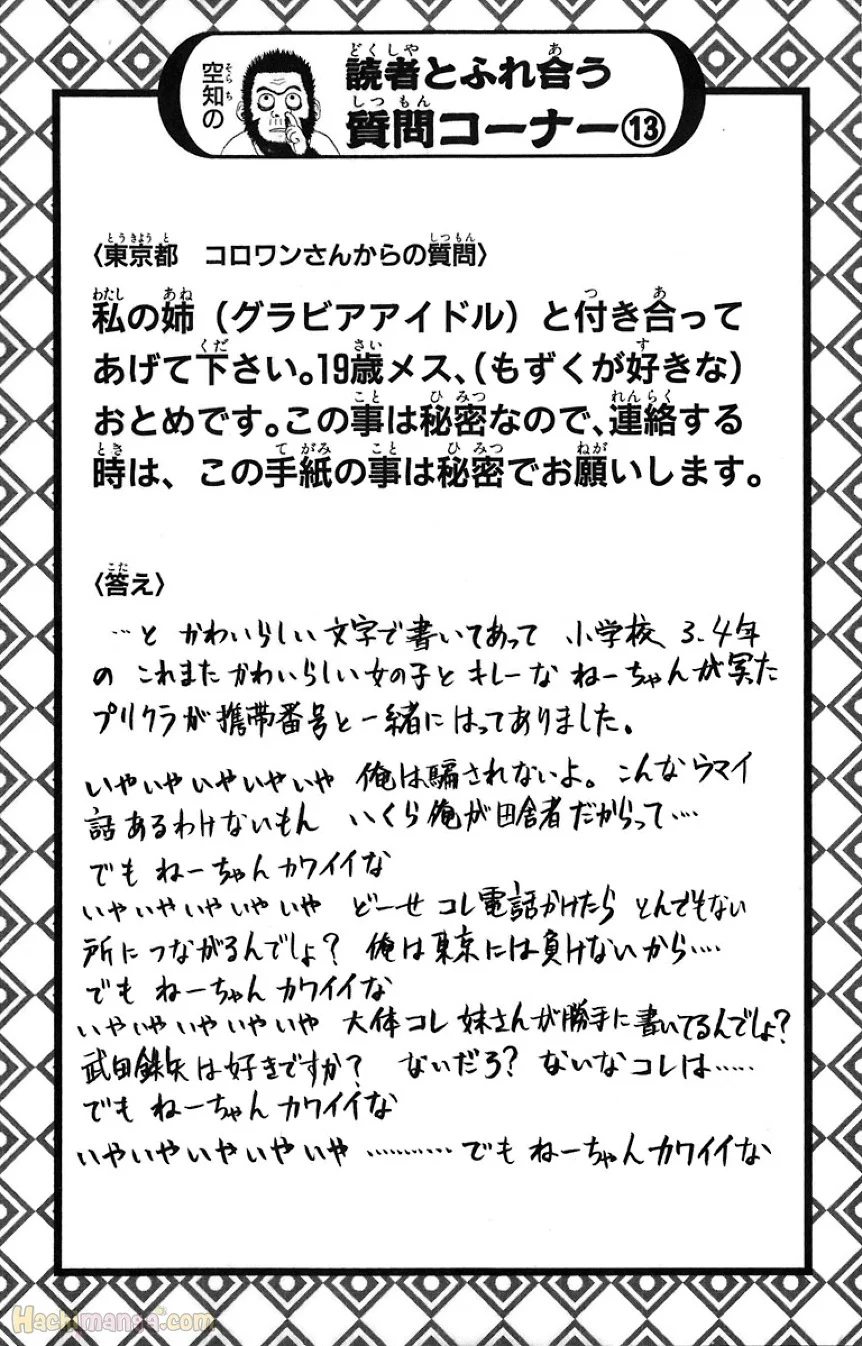 空知の
読者とふれ合う
質問コーナー⑬
〈東京都　コロワンさんからの質問〉
私の姉（グラビアアイドル）と付き合って
あげて下さい。19歳メス、（もずくが好きな）
おとめです。この事は秘密なので、連絡する
時は、この手紙の事は秘密でお願いします。
〈答え〉
…と かわいらしい文字で書いてあって 小学校 3.4年
の これまたかわいらしい女の子と キレーな ねーちゃんが写った
プリクラが携帯番号と一緒にはってありました。
いやいやいやいやいや 俺は騙されないよ。こんなウマイ
話あるわけないもん いくら俺が田舎者だからって…
でも ねーちゃんカワイイな
いやいやいやいやいや どーせ コレ電話かけたら とんでもない
所につながるんでしょ？ 俺は東京には負けないから‥‥
でも ねーちゃんカワイイな
いやいやいやいやいや 大体コレ 妹さんが勝手に書いてるんでしょ？
武田鉄矢は好きですか？ ないだろ？ ないなコレは……
でも ねーちゃんカワイイな
いやいやいやいやいや …………でも ねーちゃんカワイイな
Hachimanga.com